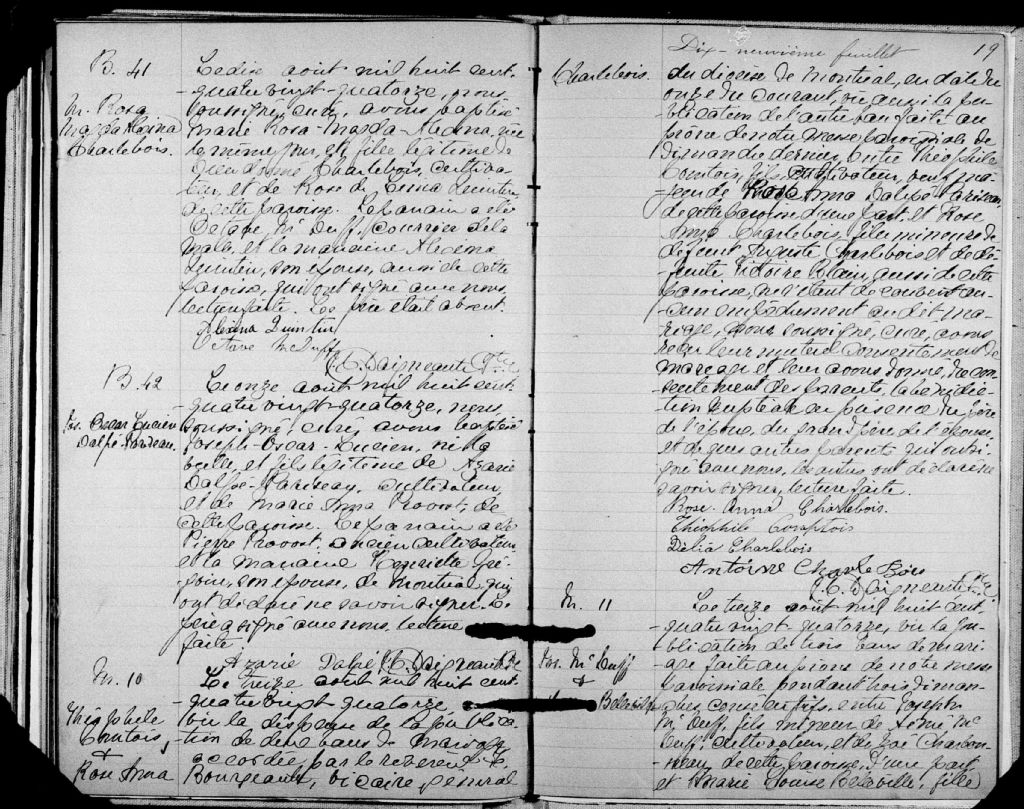 B. 41
M. Rosa
Magda Alexina
Charlebois.
Le dix août mil huit cent-
quatre vingt-quatorze, nous
soussigné, curé, avons baptisé
Marie Rosa-Magda-Alexina, née
le même jour, et fille légitime de
Dieudonné Charlebois, cultiva-
teur, et de Rose de Lima Quintin
de cette paroisse. Le parrain a été
Octave Mc Duff, courrier de la
malle, et la marraine Alexina
Quintin, son épouse, aussi de cette
paroisse, qui ont signé avec nous,
lecture faite. Le père était absent.
Alexina Quintin
Octave McDuff
J. E. Daigneault Ptre
B. 42
Jos. Oscar Lucien
Dalpé-Pariseau.
Le onze août mil huit cent
quatre vingt-quatorze, nous
soussigné, curé, avons baptisé
Joseph-Oscar-Lucien, né la
veille, et fils légitime de Azarie
Dalpé-Pariseau, cultivateur,
et de Marie Anna Provost, de
cette paroisse. Le parrain a été
Pierre Provost, ancien cultivateur
et la marraine Henriette Gré-
goire, son épouse, de Montréal, qui
ont déclaré ne savoir signer. Le
père a signé avec nous, lecture
faite.
Azarie Dalpé J. E. Daigneault Ptre
M. 10
Théophile
Comtois,
+
Rose Anna
Le treize août mil huit cent
quatre vingt-quatorze,
vu la dispense de la publica-
tion de deux bans de mariage
accordée par le révérend
Bourgeault, vicaire général
Dix-neuvième feuillet 19
Charlebois.
du diocèse de Montréal, en date du
onze du courant, vu aussi la pu-
blication de l'autre ban faite au
prône de notre messe paroissiale de
dimanche dernier, entre Théophile
Comtois, fils, cultivateur, veuf ma-
jeur de Rose Anna Dalpé Pariseau,
de cette paroisse d'une part, et Rose
Anna Charlebois, fille mineure de
défunt Charlebois et de dé-
funte Victoire Blain, aussi de cette
paroisse, ne s'étant découvert au-
cun empêchement au dit ma-
riage, nous soussigné, curé, avons
reçu leur mutuel consentement de
mariage et leur avons donné, du con-
sentement des parents, la bénédic-
tion nuptiale en présence du père
de l'époux, du grand père de l'épouse
et de quelques autres parents qui ont si-
gné avec nous, les autres ont déclaré ne
savoir signer, lecture faite.
Rose Anna Charlebois.
Théophile Comptois
Délia Charlebois
Antoine Charle Bois
J. E. Daigneault Ptre
M. 11
Jos. Mc Duff
+
Belleville
Le treize août mil huit cent
quatre vingt-quatorze, vu la pu-
blication de trois bans de mari-
age faite au prône de notre messe
paroissiale pendant trois diman-
ches consécutifs, entre Joseph
Mc Duff, fils mineur de Mc
Duff, cultivateur, et de Zoé Charbon-
neau, de cette paroisse, d'une part
et Marie Louise Belleville, fille